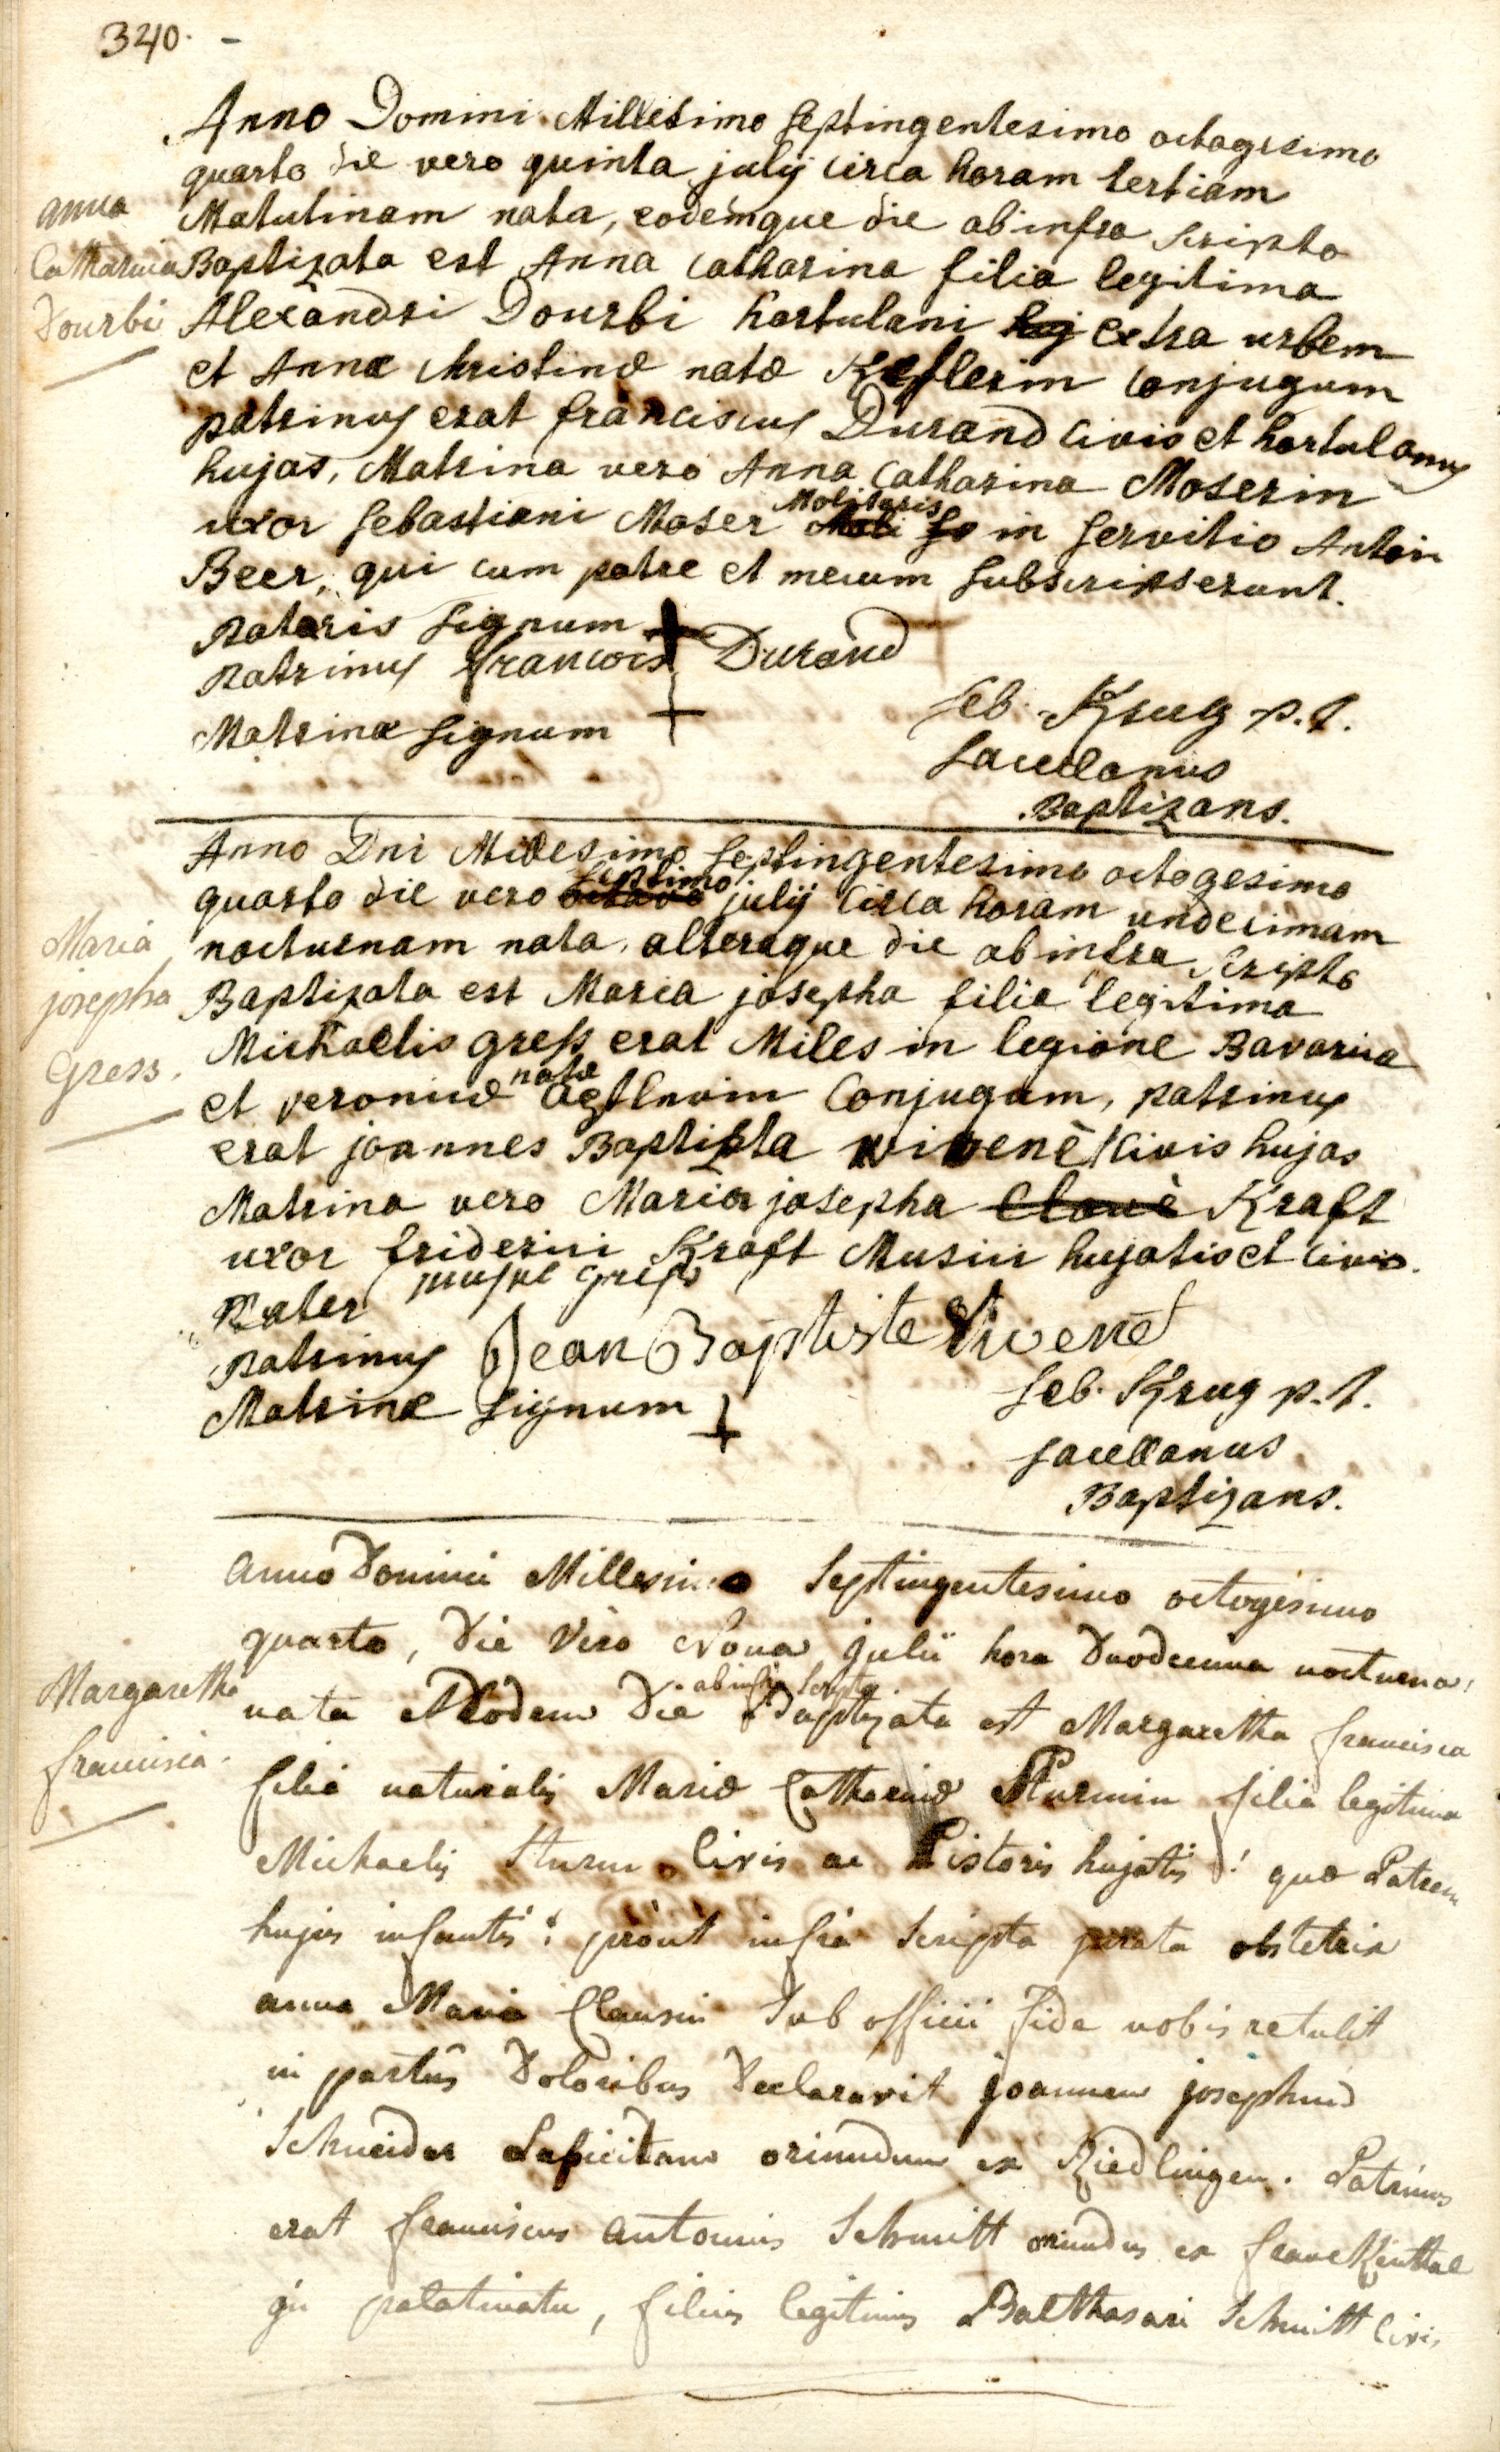 340. -
Anno Domini Millesimo septingentesimo octogesimo
quarto die vero quinta julij circa horam tertiam
Matutinam nata, eodemque die ab infra scripto
Baptizata est Anna Catharina filia legitima
Alexandri Dourbi hortulani extra urbem
et Annæ Christinæ natæ Keflerin Conjugum
patrinus erat franciscus Durand civis et hortulanus
hujas, Matrina vero Anna Catharina Moserin
uxor sebastiani Moser Molitoris in servitio Antoin
Beer, qui cum patre et mecum subscripserunt.
Anna
Catharina
Dourbi
Pateris signum +
patrinus francois Durand
Matrinæ signum +
seb. Krug p.t.
sacellanus
Baptizans.
Anno Dni Millesimo septingentesimo octogesimo
quarto die vero septimo julij circa horam undecimam
nocturnam nata, alteraque die ab infra scripto
Baptizata est Maria josepha filia legitima
Michaelis gress erat Miles in legione Bavarica
et veronicæ natæ Conjugum, patrinus
erat joannes Baptista vivenè civis hujas
Matrina vero Maria josepha Kraft
uxor friderici Kraft Musici hujatis et civis.
Maria
josepha
Gress.
Pater
patrinus Jean Baptiste Vivené
Matrinæ signum +
seb. Krug p.t.
sacellanus
Baptizans.
Anno Domini Millesimo Septingentesimo octogesimo
quarto, Die Vero Nona Julii hora Duodecima nocturna
nata Eodem Die ab infra Scripto Baptizata est Margaretha francisca
filia naturalis Mariæ Catharinæ Sturmin filia legitima
Michaelis Sturm Civis ac Pistoris hujatis! quæ Patrem
hujus infantis: prout infra scripta jurata obstetrix
anna Maria Clausin Sub officii fide nobis retulit
in partûs Doloribus Declaravit joannem josephum
Schneider Lapicidam oriundum ex Riedlingen. Patrinus
erat franciscus antonius Schmitt oriundus ex franckenthal
in palatinatu, filius legitimus Balthasari Schmitt Civis
Margaretha
francisca.